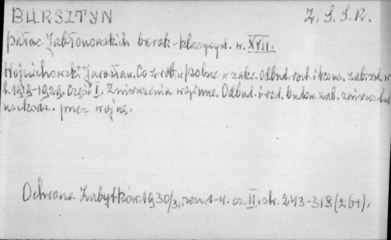 BURSZTYN Z.S.S.R.
pałac Jabłonowskich barok-klasycyst. w. XVII.
Wojciechowski Jarosław. Co zrobiła Polska w zakr. Odbud. rest. i konserw. zabytków w
l. 1919-1929. Część I. Zniszczenia wojenne. Odbud. i rest. budow. zab. zniszcz. lub
uszkodz. przez wojnę.
Ochrona Zabytków 1930/31, zesz. 1-4. cz. II. str. 243-318 (261).